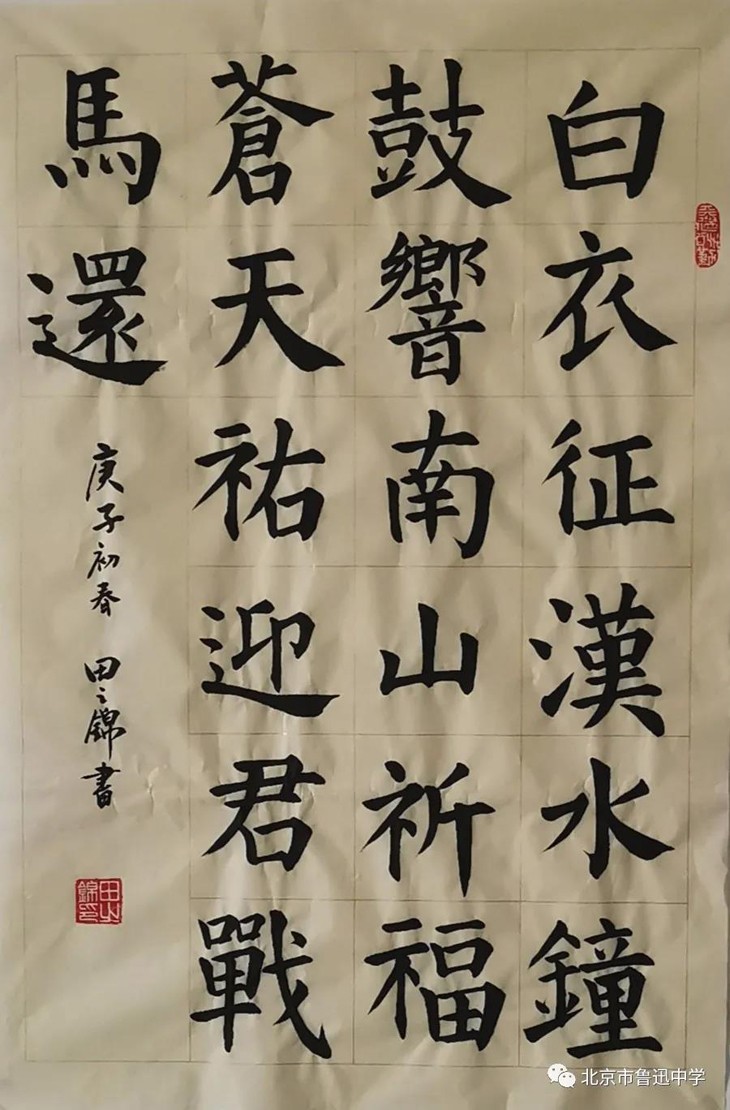 白衣征漢水鐘
鼓響南山祈福
蒼天祐迎君戰
馬還
庚子初春 田之錦書
田之錦印
北京市鲁迅中学